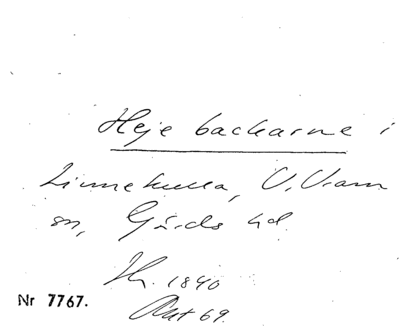 Heje backarne i
Linnekulla, V. Vram
sn, Gärds hd.
Hr. 1840
Nr 7767.
69.